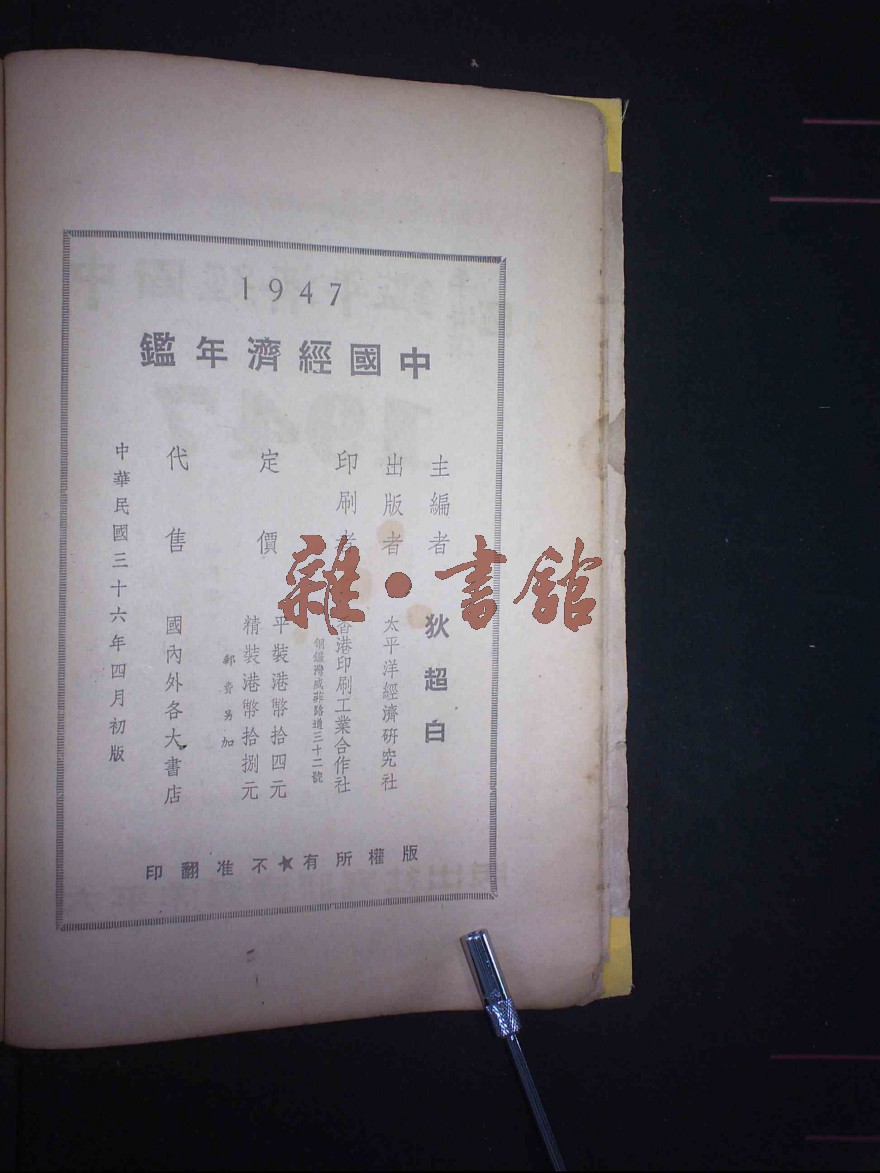 1947
中國經濟年鑑
主編者 狄超白
出版者 太平洋經濟研究社
印刷者 香港印刷工業合作社
銅鑼灣威菲路道三十二號
定價 平裝港幣拾四元
精裝港幣拾捌元
郵費另加
代售 國內外各大書店
中華民國三十六年四月初版
版權所有★不准翻印
雜·書館